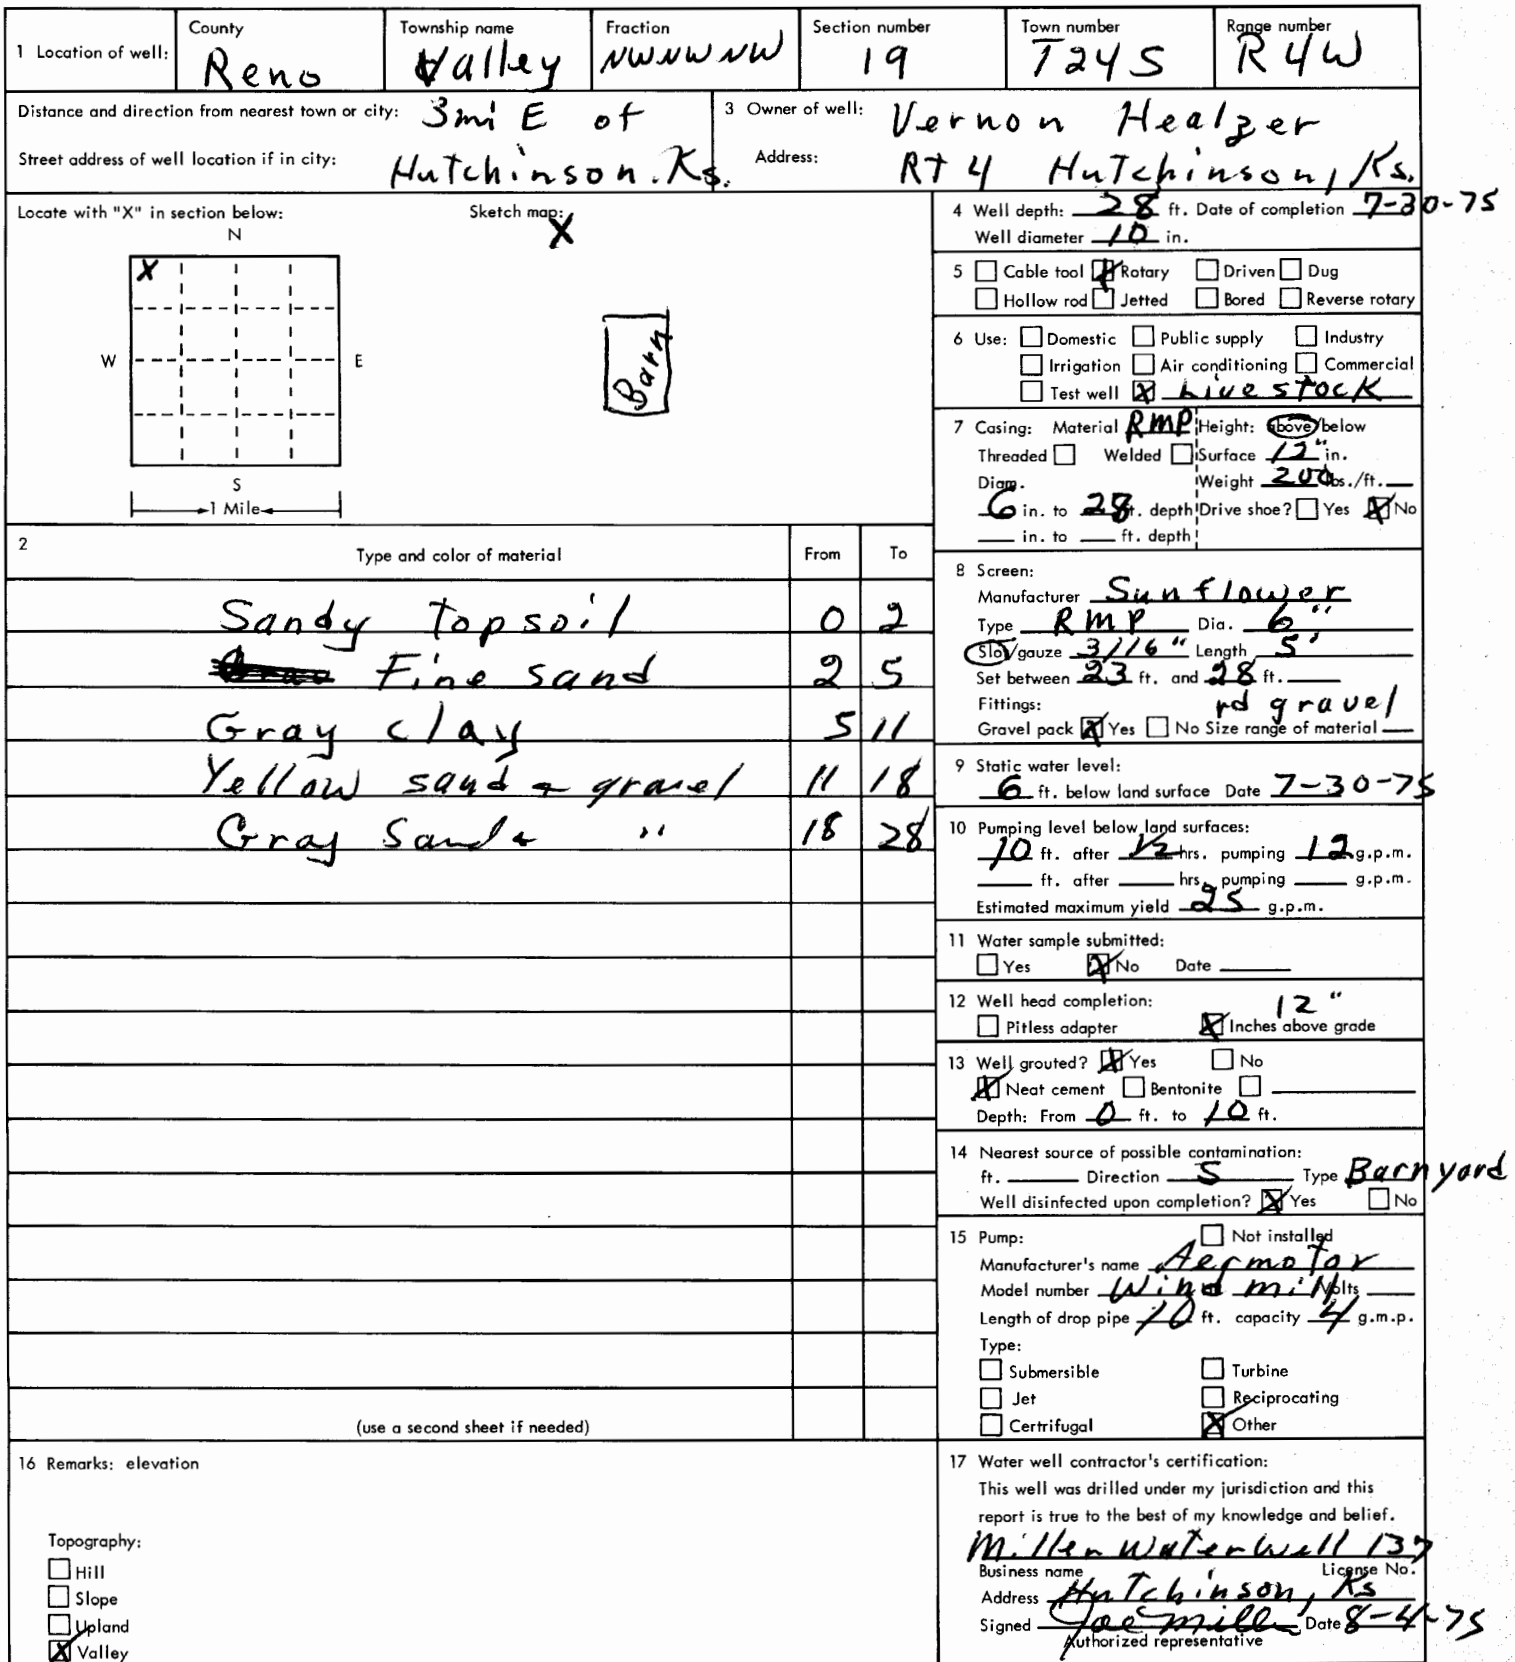 1 Location of well: County Reno Township name Valley Fraction NWNWNW Section number 19 Town number T24S Range number R4W
Distance and direction from nearest town or city: 3mi E of
Street address of well location if in city: Hutchinson. Ks.
3 Owner of well: Vernon Healzer
Address: RT 4 Hutchinson, Ks.
Locate with "X" in section below: Sketch map:
X
N
X
W E
S
1 Mile
Barn
2 Type and color of material From To
Sandy topsoil 0 2
Fine sand 2 5
Gray clay 5 11
Yellow sand & gravel 11 18
Gray Sand & " 18 28
(use a second sheet if needed)
4 Well depth: 28 ft. Date of completion 7-30-75
Well diameter 10 in.
5 Cable tool X Rotary Driven Dug
Hollow rod Jetted Bored Reverse rotary
6 Use: Domestic Public supply Industry
Irrigation Air conditioning Commercial
Test well X Livestock
7 Casing: Material RMP Height: above/below
Threaded Welded Surface 12" in.
Diam. Weight 200 lbs./ft.
6 in. to 28 ft. depth Drive shoe? Yes X No
in. to ft. depth
8 Screen:
Manufacturer Sunflower
Type RMP Dia. 6"
Slot/gauze 3/16" Length 5'
Set between 23 ft. and 28 ft.
Fittings: rd gravel
Gravel pack X Yes No Size range of material
9 Static water level:
6 ft. below land surface Date 7-30-75
10 Pumping level below land surfaces:
10 ft. after 1/2 hrs. pumping 12 g.p.m.
ft. after hrs. pumping g.p.m.
Estimated maximum yield 25 g.p.m.
11 Water sample submitted:
Yes X No Date
12 Well head completion: 12"
Pitless adapter X Inches above grade
13 Well grouted? X Yes No
X Neat cement Bentonite
Depth: From 0 ft. to 10 ft.
14 Nearest source of possible contamination:
ft. Direction S Type Barnyard
Well disinfected upon completion? X Yes No
15 Pump: Not installed
Manufacturer's name Aermotor
Model number Wind mill Volts
Length of drop pipe 10 ft. capacity 4 g.m.p.
Type:
Submersible Turbine
Jet Reciprocating
Certrifugal X Other
16 Remarks: elevation
Topography:
Hill
Slope
Upland
X Valley
17 Water well contractor's certification:
This well was drilled under my jurisdiction and this
report is true to the best of my knowledge and belief.
Miller Waterwell 137
Business name License No.
Address Hutchinson, Ks
Signed Joe Miller Date 8-4-75
Authorized representative